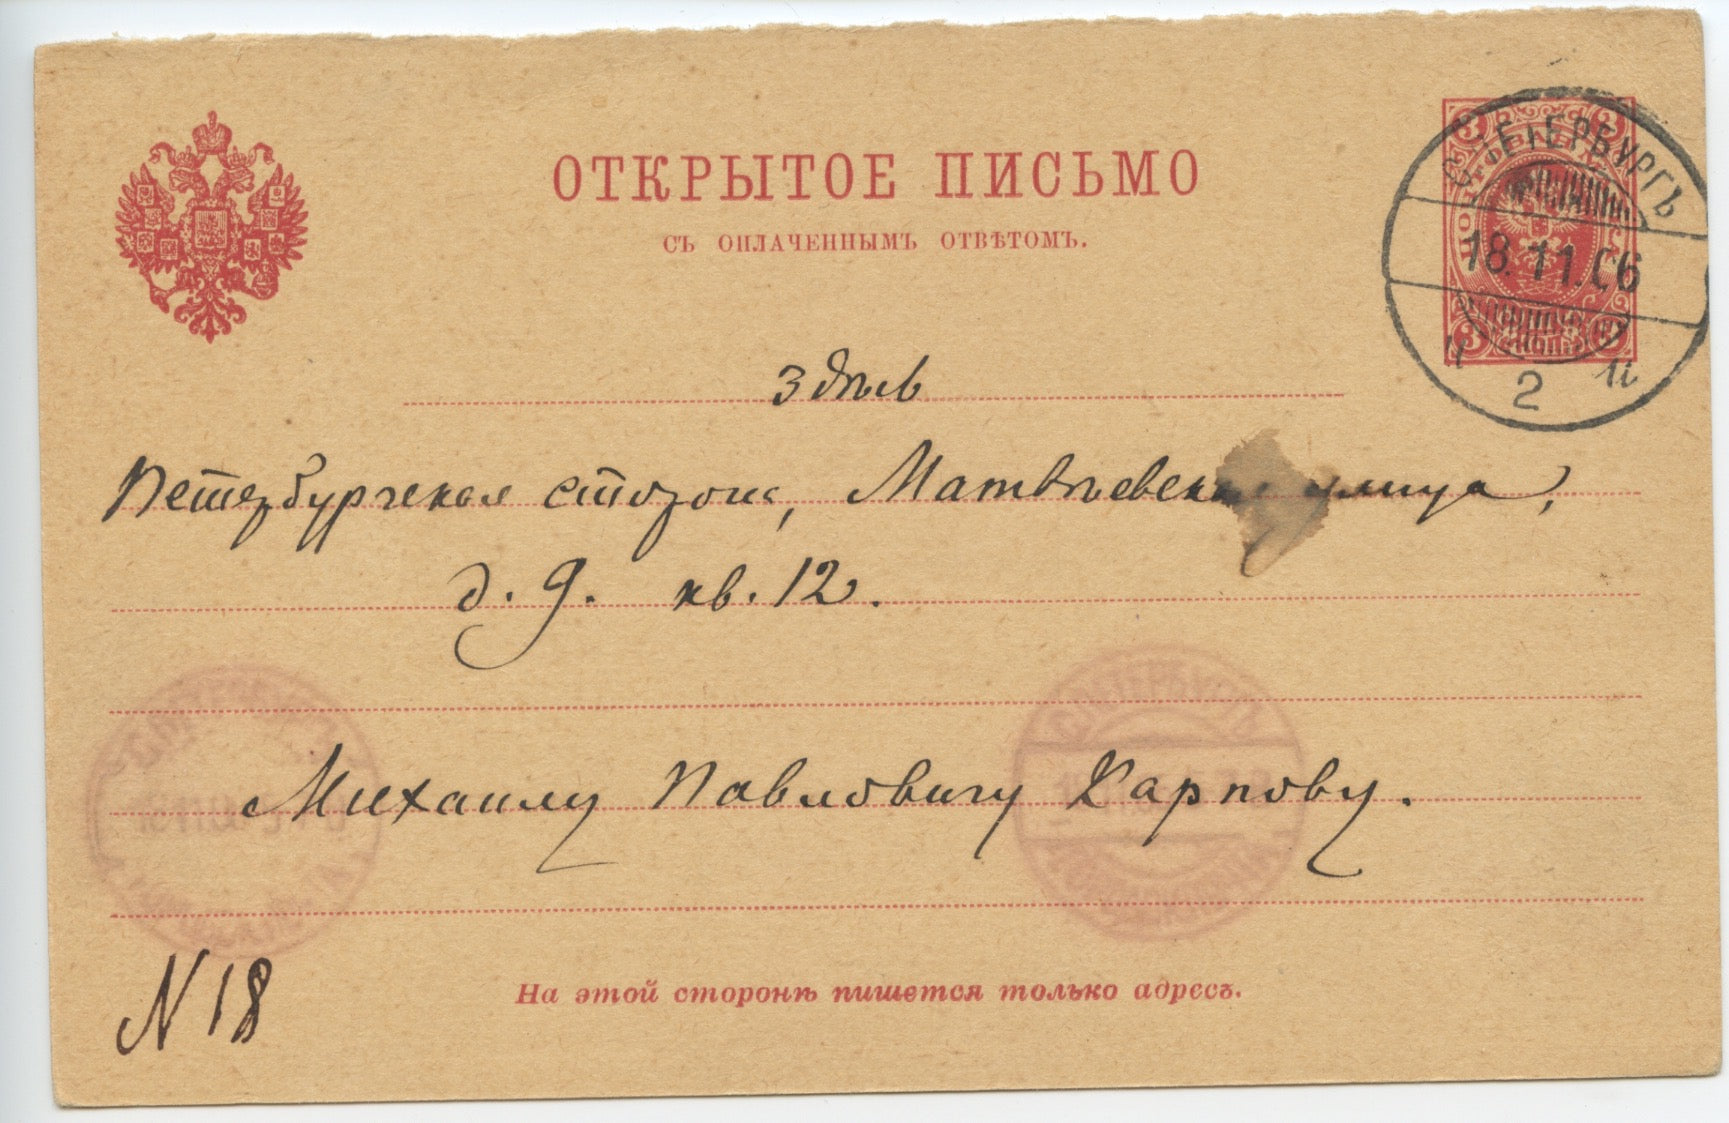 ОТКРЫТОЕ ПИСЬМО
СЪ ОПЛАЧЕННЫМЪ ОТВѢТОМЪ.
С.ПЕТЕРБУРГЪ
18.11.06
2
3 3
3 3
здѣсь
Петербургская сторона, Матвѣевская улица,
д. 9. кв. 12.
Михаилу Павловичу Карпову.
N 18
На этой сторонѣ пишется только адресъ.